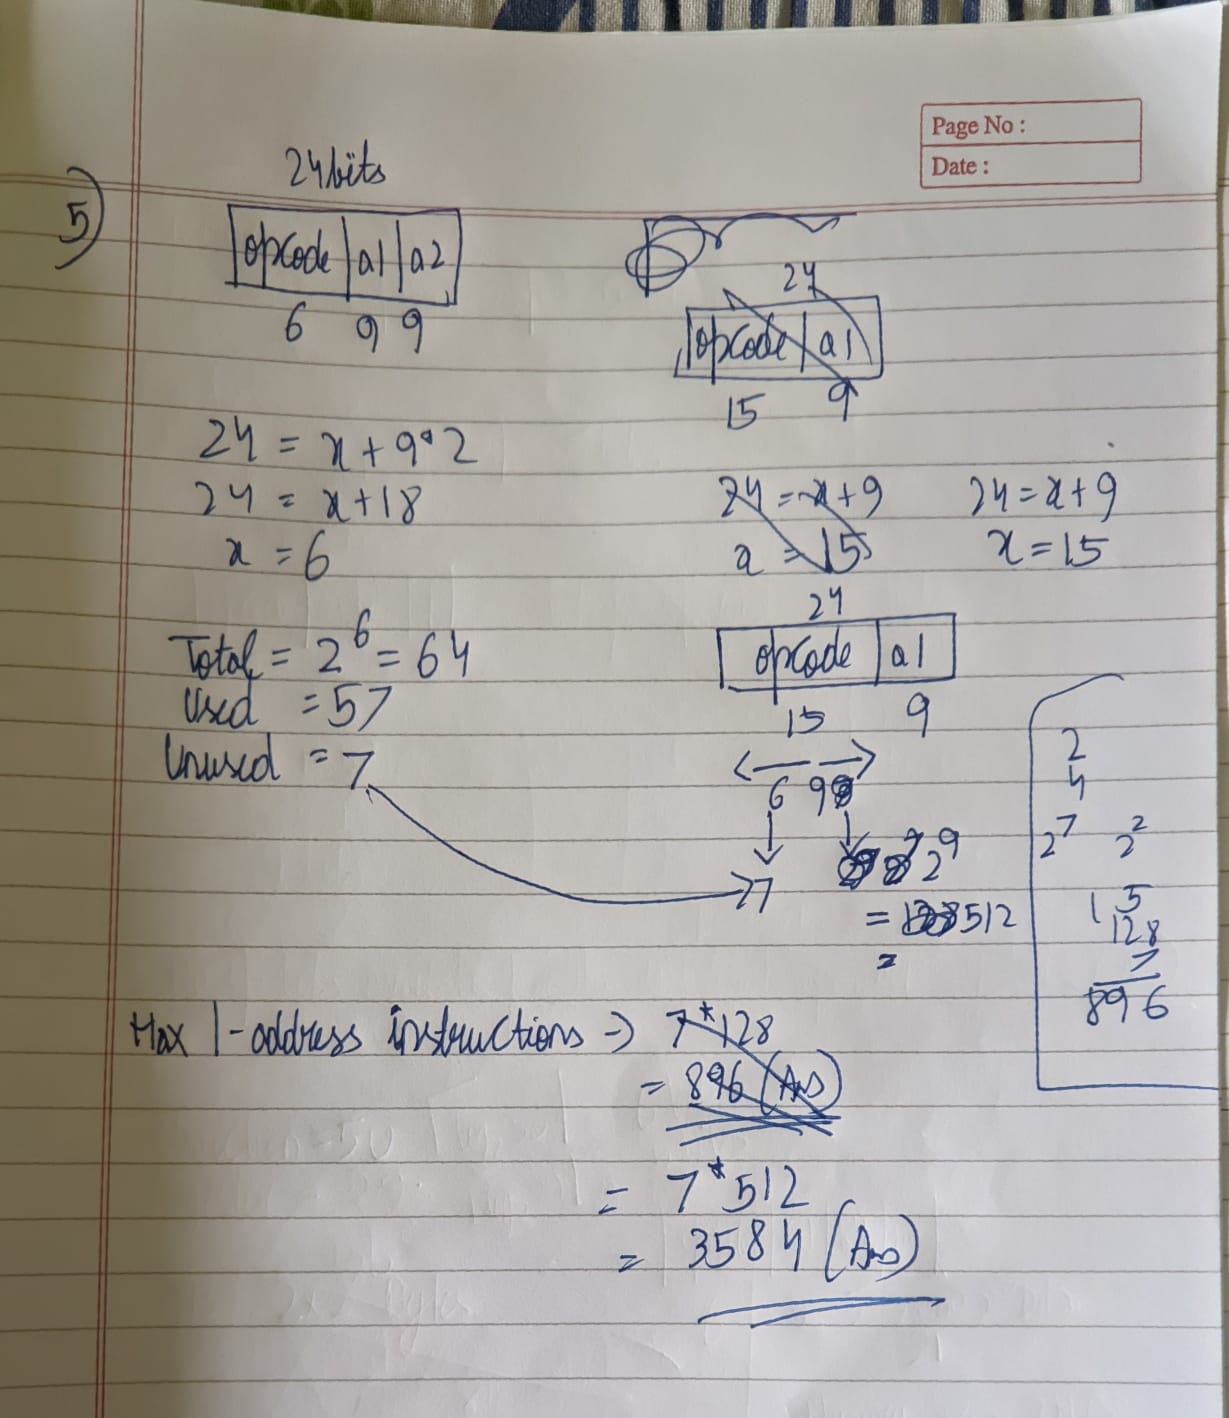 Page No :
Date :
5)
24bits
opcode | a1 | a2
6 9 9
24 = x + 9*2
24 = x + 18
x = 6
Total = 2^6 = 64
Used = 57
Unused = 7
24
opcode | a1
15 9
24 = x + 9
x = 15
24 = x + 9
x = 15
24
opcode | a1
15 9
6 9
7 2^9
= 512
=
2
4
2^7 2^2
1 5
128
7
896
Max 1-address instructions → 7*128
= 896 (Ans)
= 7*512
= 3584 (Ans)